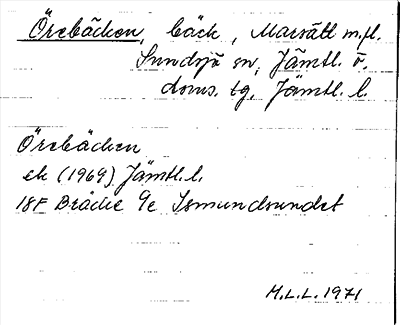 Örebäcken, bäck, Marsätt m.fl.
Sundsjö sn, Jämtl. ö.
doms. tg. Jämtl. l.
Örebäcken
ek (1969) Jämtl. l.
18F Bräcke 9e Ismundsundet
M.L.L. 1971